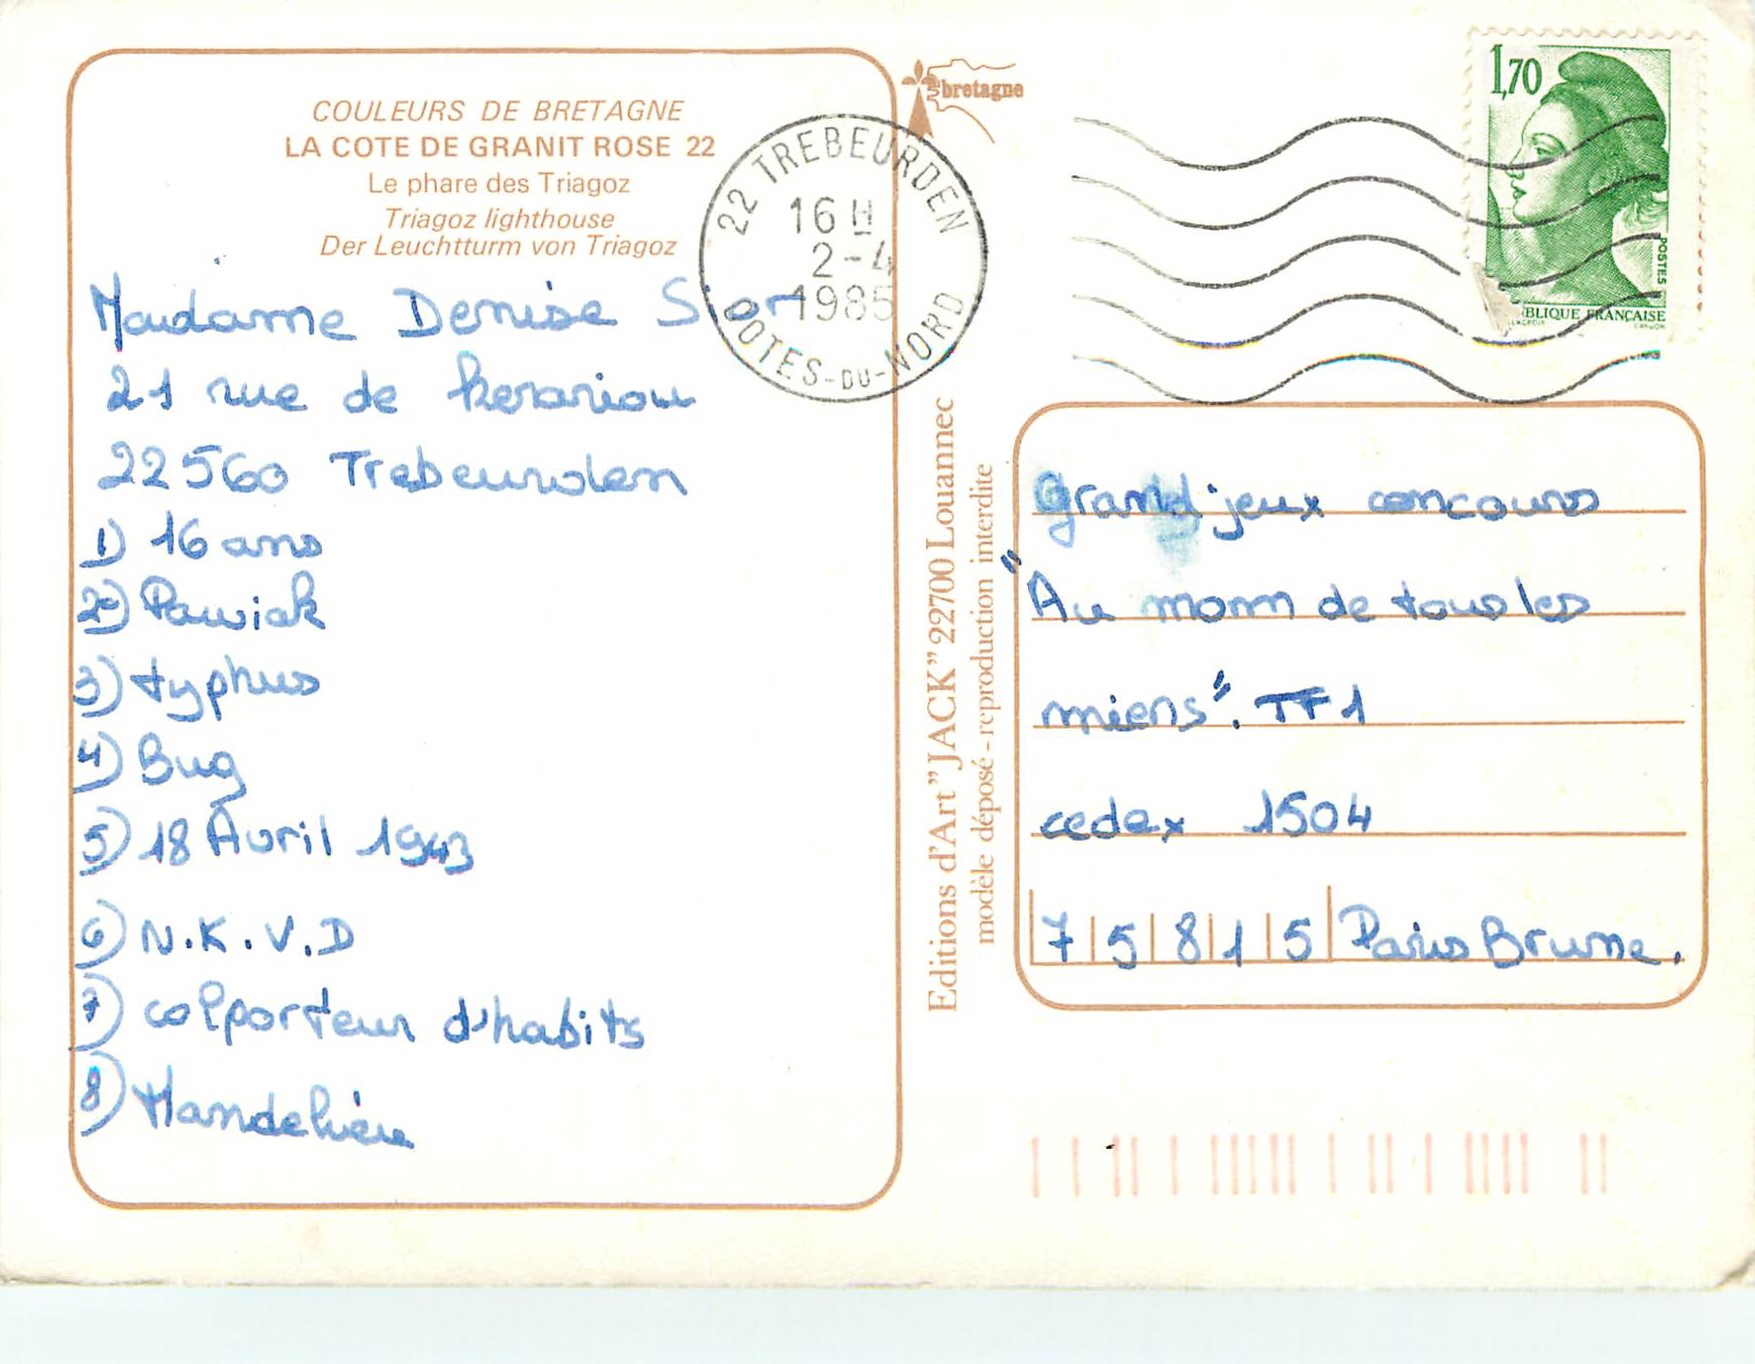 COULEURS DE BRETAGNE
LA COTE DE GRANIT ROSE 22
Le phare des Triagoz
Triagoz lighthouse
Der Leuchtturm von Triagoz
bretagne
22 TREBEURDEN
16 H
2-4
1985
COTES-DU-NORD
1,70
POSTES
BLIQUE FRANÇAISE
Madame Denise
21 rue de
22560 Trebeurden
1) 16 ans
2) Pawiak
3) typhus
4) Bug
5) 18 Avril 1943
6) N.K.V.D
7) colporteur d'habits
8) Mandelieu
Editions d'Art "JACK" 22700 Louannec
modèle déposé - reproduction interdite
Grand jeux concours
"Au mom de tous les
miens". TF1
cedex 1504
75815 Paris Brune.